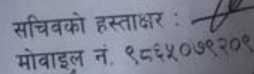 सचिवको हस्ताक्षर :
मोवाइल नं. ९८६५०७९२०९